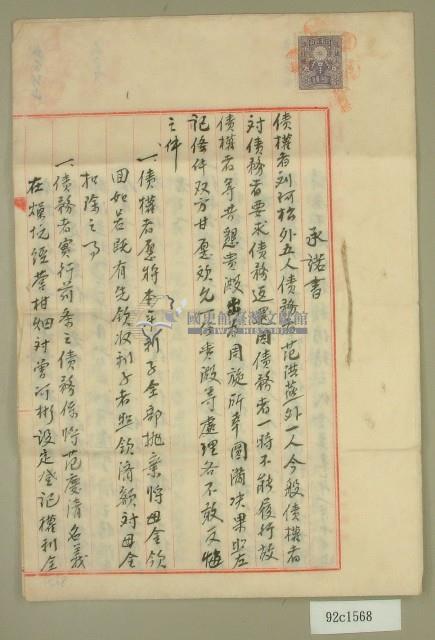 承諾書
債權者劉阿松外五人債務者范洪燈外一人今般債權者
對債務者要求債務返還因債務者一時不能履行故
債權者等共懇貴殿出為周旋所幸圓滿決果照左
記條件双方甘愿欢允了貴殿等處理各不敢反悔
之件
一、債權者愿將本年新子全部抛棄將母金領
回如若既有先領收利子者照領清額対母金
扣除之事
一、債務者實行前条之債務係將范慶清名義
在燥坑經營柑畑対曾阿彬設定登記權利金
國史館臺灣文獻館
92c1568